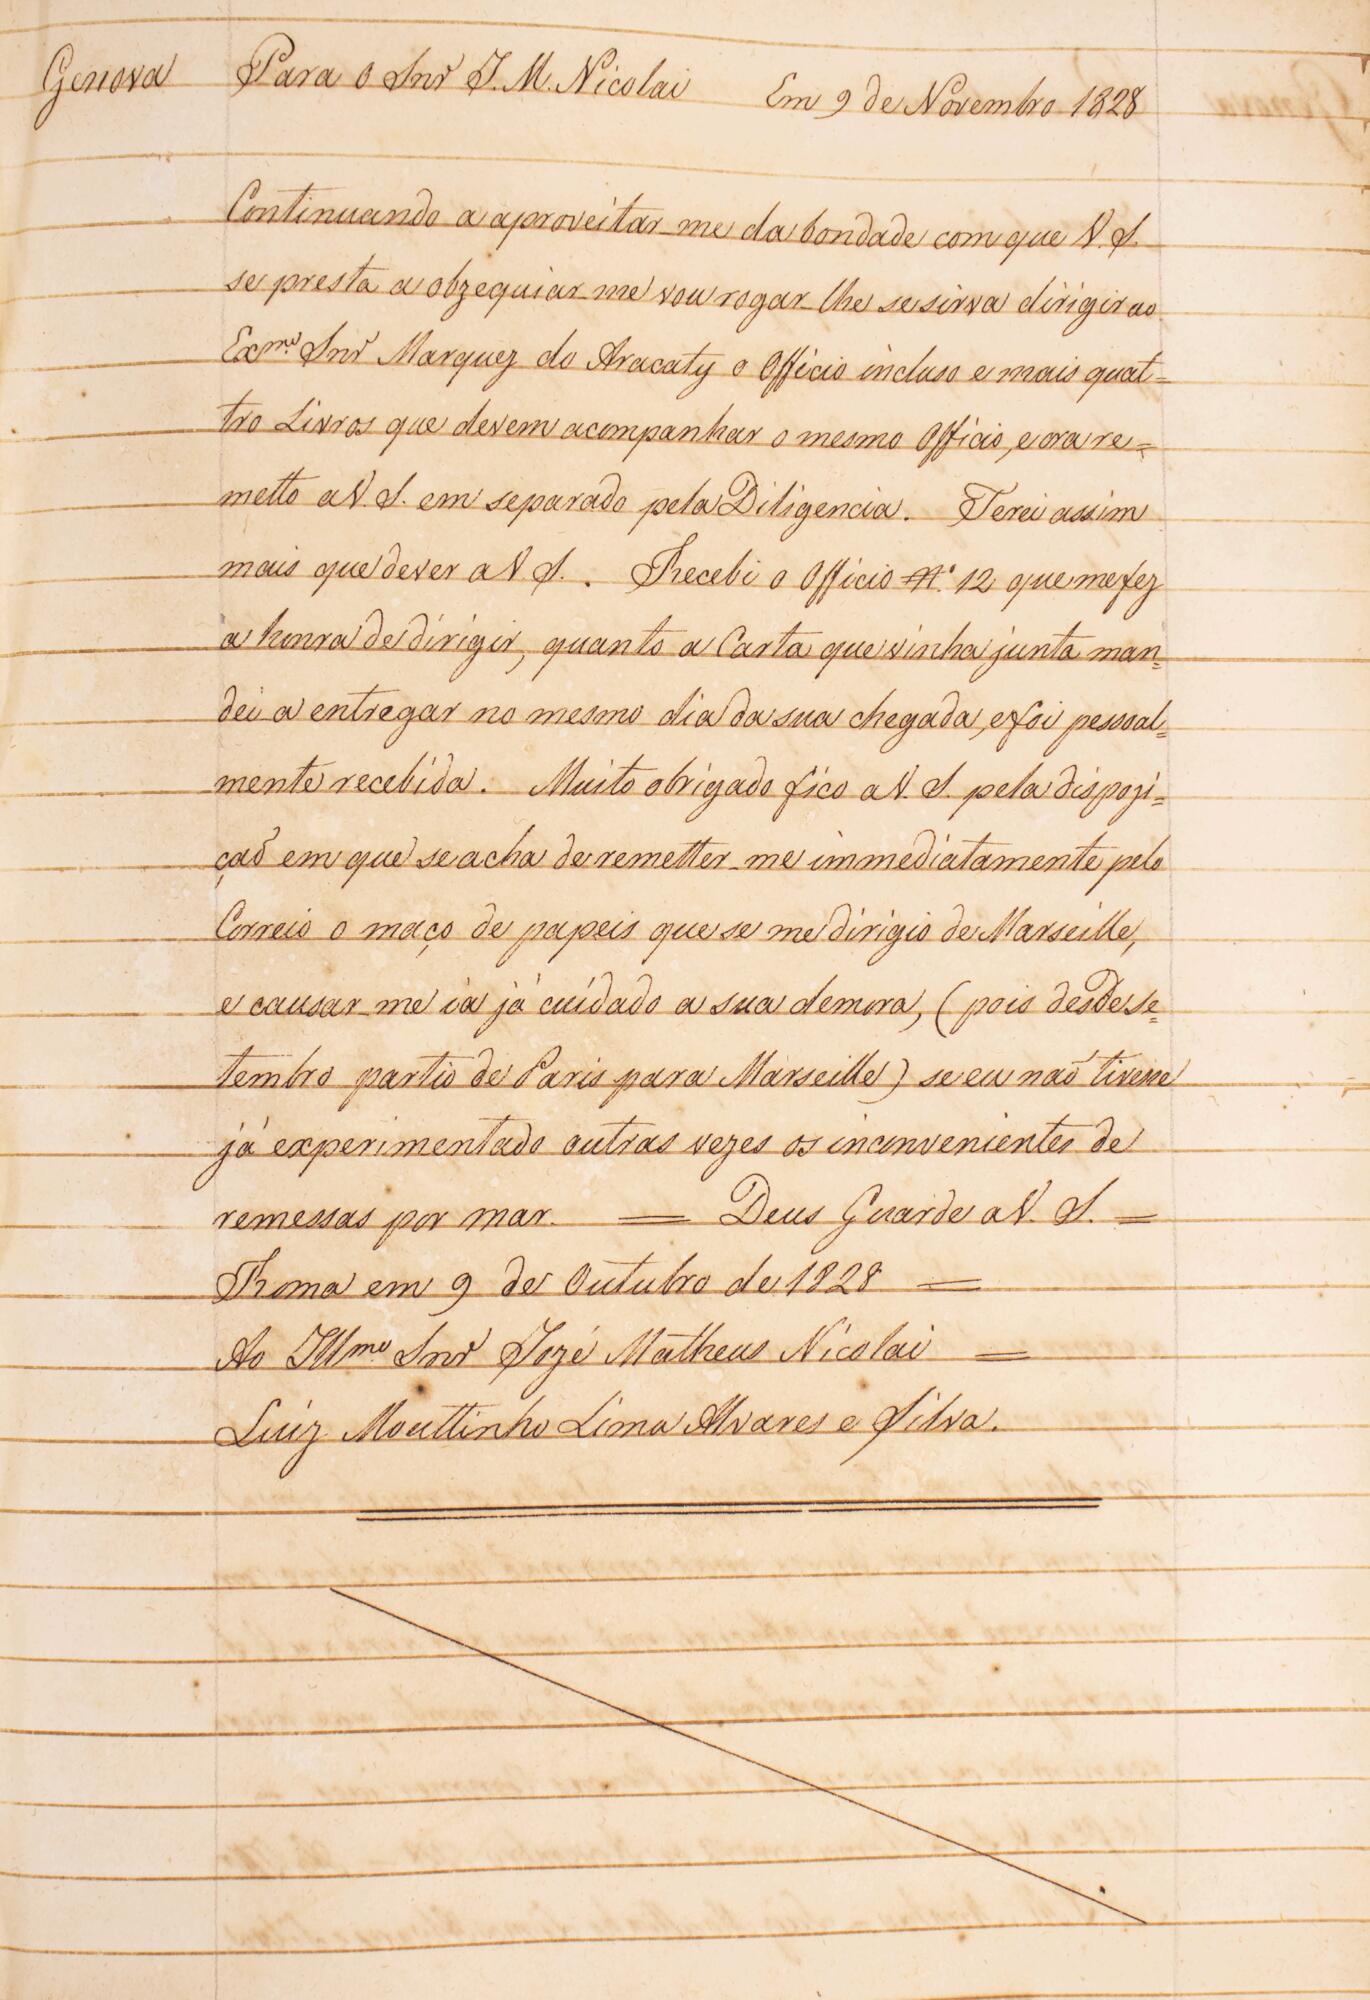 Genova Para o Snr̃ J. M. Nicolai Em 9 de Novembro 1828
Continuando a aproveitar-me da bondade com que V. S.
se presta a obzequiar-me vou rogar-lhe se sirva dirigir ao
Exmo. Snr̃ Marquez do Aracaty o Officio incluso e mais quat=
tro Livros que devem acompanhar o mesmo Officio, e ora re=
metto a V. S. em separado pela Diligencia. Terei assim
mais que dever a V S. . Recebi o Officio N.o 12 que me fez
a honra de dirigir, quanto a Carta que vinha junta man=
dei a entregar no mesmo dia da sua chegada, e foi pessoal=
mente recebida. Muito obrigado fico a V. S. pela dispozi=
çaõ em que se acha de remetter-me immediatamente pelo
Correio o maço de papeis que se me dirigio de Marseille,
e causar-me ia já cuidado a sua demora, (pois desde Se=
tembro partio de Paris para Marseille) se eu naõ tivesse
já experimentado outras vezes os inconvenientes de
remessas por mar. = Deus Guarde a V. S. =
Roma em 9 de Outubro de 1828 =
Ao Illmo Snr̃ Jozé Matheus Nicolai =
Luiz Mouttinho Lima Alvares e Silva.